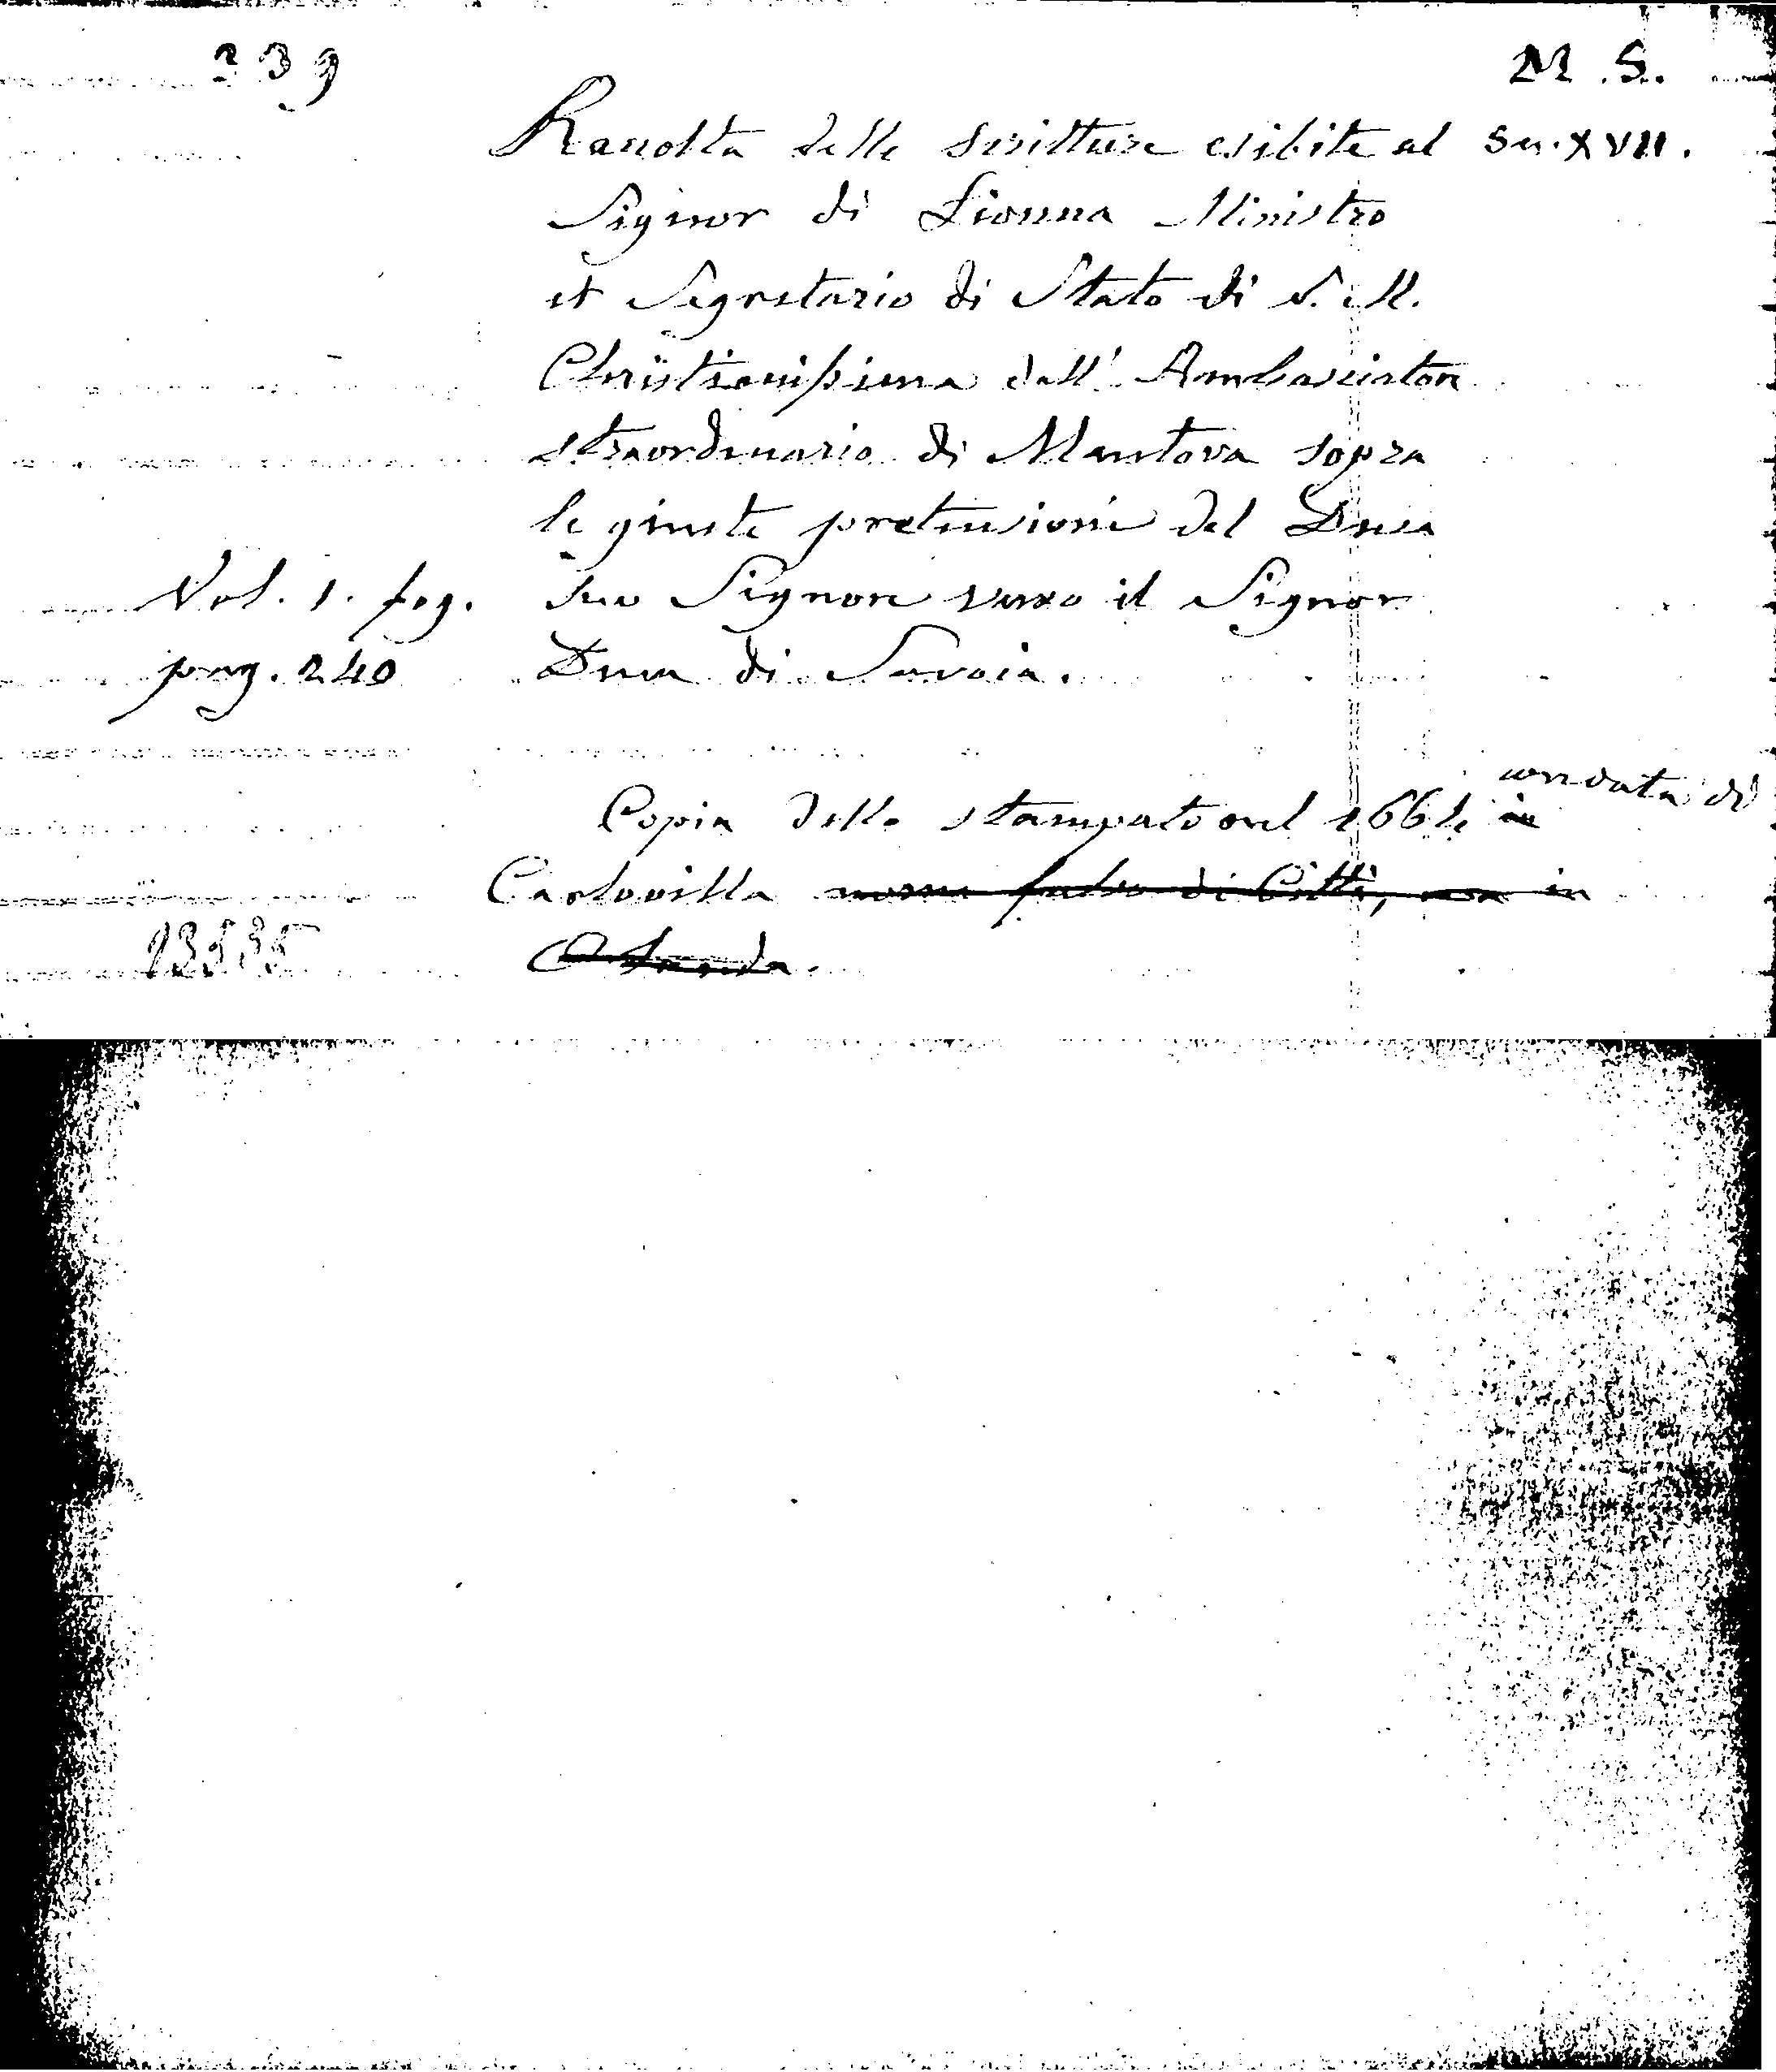 239
M.S.
Raccolta delle scritture esibite al Sec. XVII.
Signor di Lionna Ministro
et Segretario di Stato di S. M.
Christianissima dall' Ambasciator
straordinario di Mantova sopra
le giuste pretensioni del Duca
Vol. 1. fog. suo Signore verso il Signor
pag. 240 Duca di Savoia.
con data di
Copia dello stampato nel 1664 in
Carlovilla nome falso di Città, in
13535